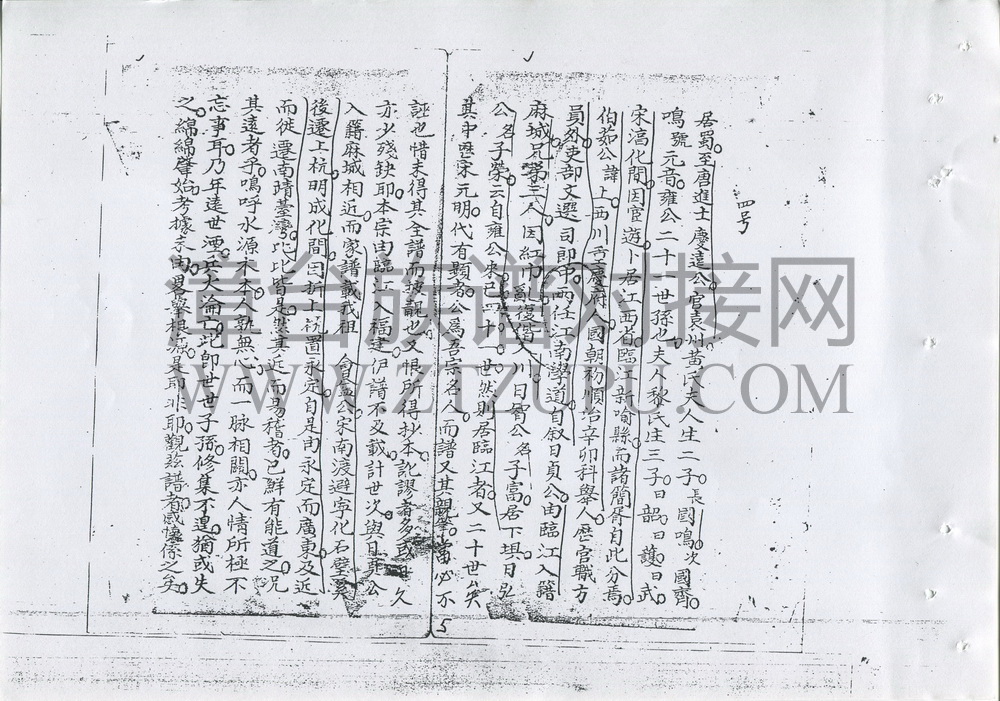 四号
居蜀至唐進士慶遠公官袁州黃氏夫人生二子長國鳴次國齊
鳴號元音雍公二十一世孫也夫人黎氏生三子曰韶曰護曰武
宋淳化間因官遊卜居江西省臨江新喻縣而諸簡胥自此分焉
伯茹公諱上西川重慶府人國朝初順治辛卯科舉人歷官職方
員外吏部文選司郎中兩任江南學道自叙曰貞公由臨江入籍
麻城兄弟三人因紅巾亂復皆入川曰公名子富居下垻曰弘
公名子榮云自雍公來已四十世然則居臨江者又二十世矣
其中歷宋元明代有顯者公為吾宗名人而譜又其親筆當必不
誣也惜未得其全譜而披覩也又恨所得抄本訛謬者多或久
亦少殘缺耶本宗由臨江入福建伊譜不及載計世次與貞公
入籍麻城相近而家譜載我祖會益公宋南渡避寧化石壁
後遷上杭明成化間因折上杭置永定自是由永定而廣東及近
而従遷南晴臺灣比比皆是然其近而易稽者已鮮有能道之況
其遠者乎嗚呼水源木本人孰無心而一脉相關亦人情所極不
忘事耳乃年遠世湮兵火淪亡此即世世子孫修集不遑猶或失
之綿綿肇始考據未由畧舉根源是耶非耶觀茲譜者感懷係之矣
5
章台族谱对接网
WWW.ZTZUPU.COM